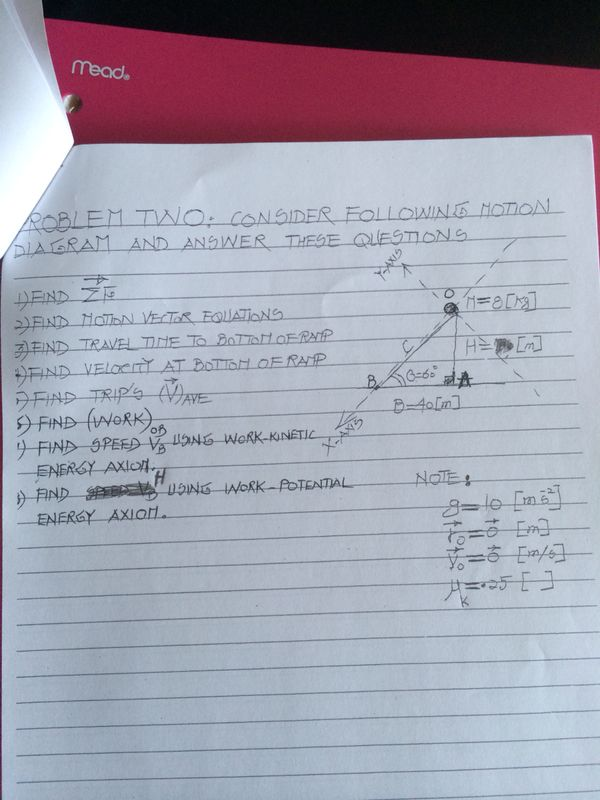 Mead
PROBLEM TWO: CONSIDER FOLLOWING MOTION
DIAGRAM AND ANSWER THESE QUESTIONS
1) FIND
2) FIND MOTION VECTOR EQUATIONS
3) FIND TRAVEL TIME TO BOTTOM OF RAMP
4) FIND VELOCITY AT BOTTOM OF RAMP
5) FIND TRIP'S (V)AVE
6) FIND (WORK)OB
7) FIND SPEED VB USING WORK-KINETIC
ENERGY AXIOM.
8) FIND H USING WORK-POTENTIAL
ENERGY AXIOM.
Y-AXIS
O
M=8[Kg]
C
H= [m]
B
θ=60°
A
B=40[m]
X-AXIS
NOTE:
g=10 [ms-2]
r0=0 [m]
V0=0 [m/s]
μK=.25 [ ]